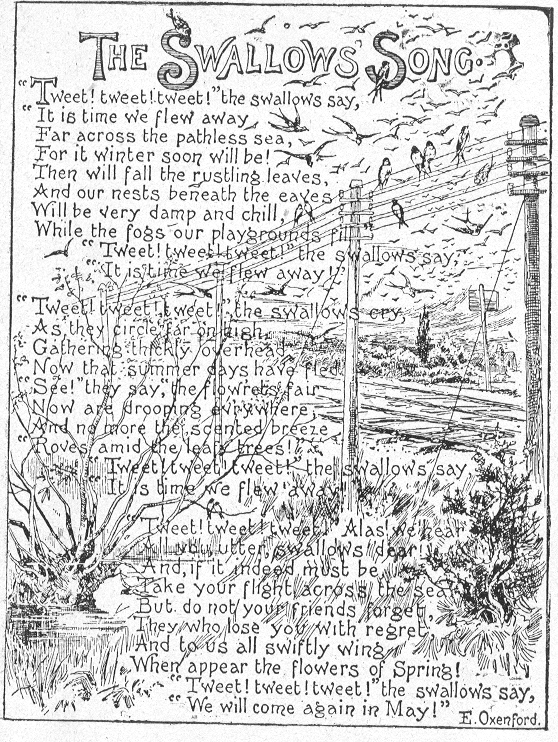 THE SWALLOWS' SONG.
"Tweet! tweet! tweet!" the swallows say,
"It is time we flew away,
Far across the pathless sea,
For it winter soon will be!
Then will fall the rustling leaves,
And our nests beneath the eaves
Will be very damp and chill,
While the fogs our playgrounds fill."
"Tweet! tweet! tweet!" the swallows say,
"It is time we flew away!"
"Tweet! tweet! tweet!" the swallows cry,
As they circle far on high,
Gathering thickly overhead
Now that summer days have fled.
"See!" they say, "the flow'rets fair
Now are drooping ev'rywhere,
And no more the scented breeze
"Roves amid the leafy trees!"
"Tweet! tweet! tweet!" the swallows say
"It is time we flew away!"
"Tweet! tweet! tweet!" Alas! we hear
All you utter, swallows dear!
And, if it indeed must be,
Take your flight across the sea,
But do not your friends forget,
They who lose you with regret,
And to us all swiftly wing
When appear the flowers of Spring!
"Tweet! tweet! tweet!" the swallows say,
"We will come again in May!"
E. Oxenford.